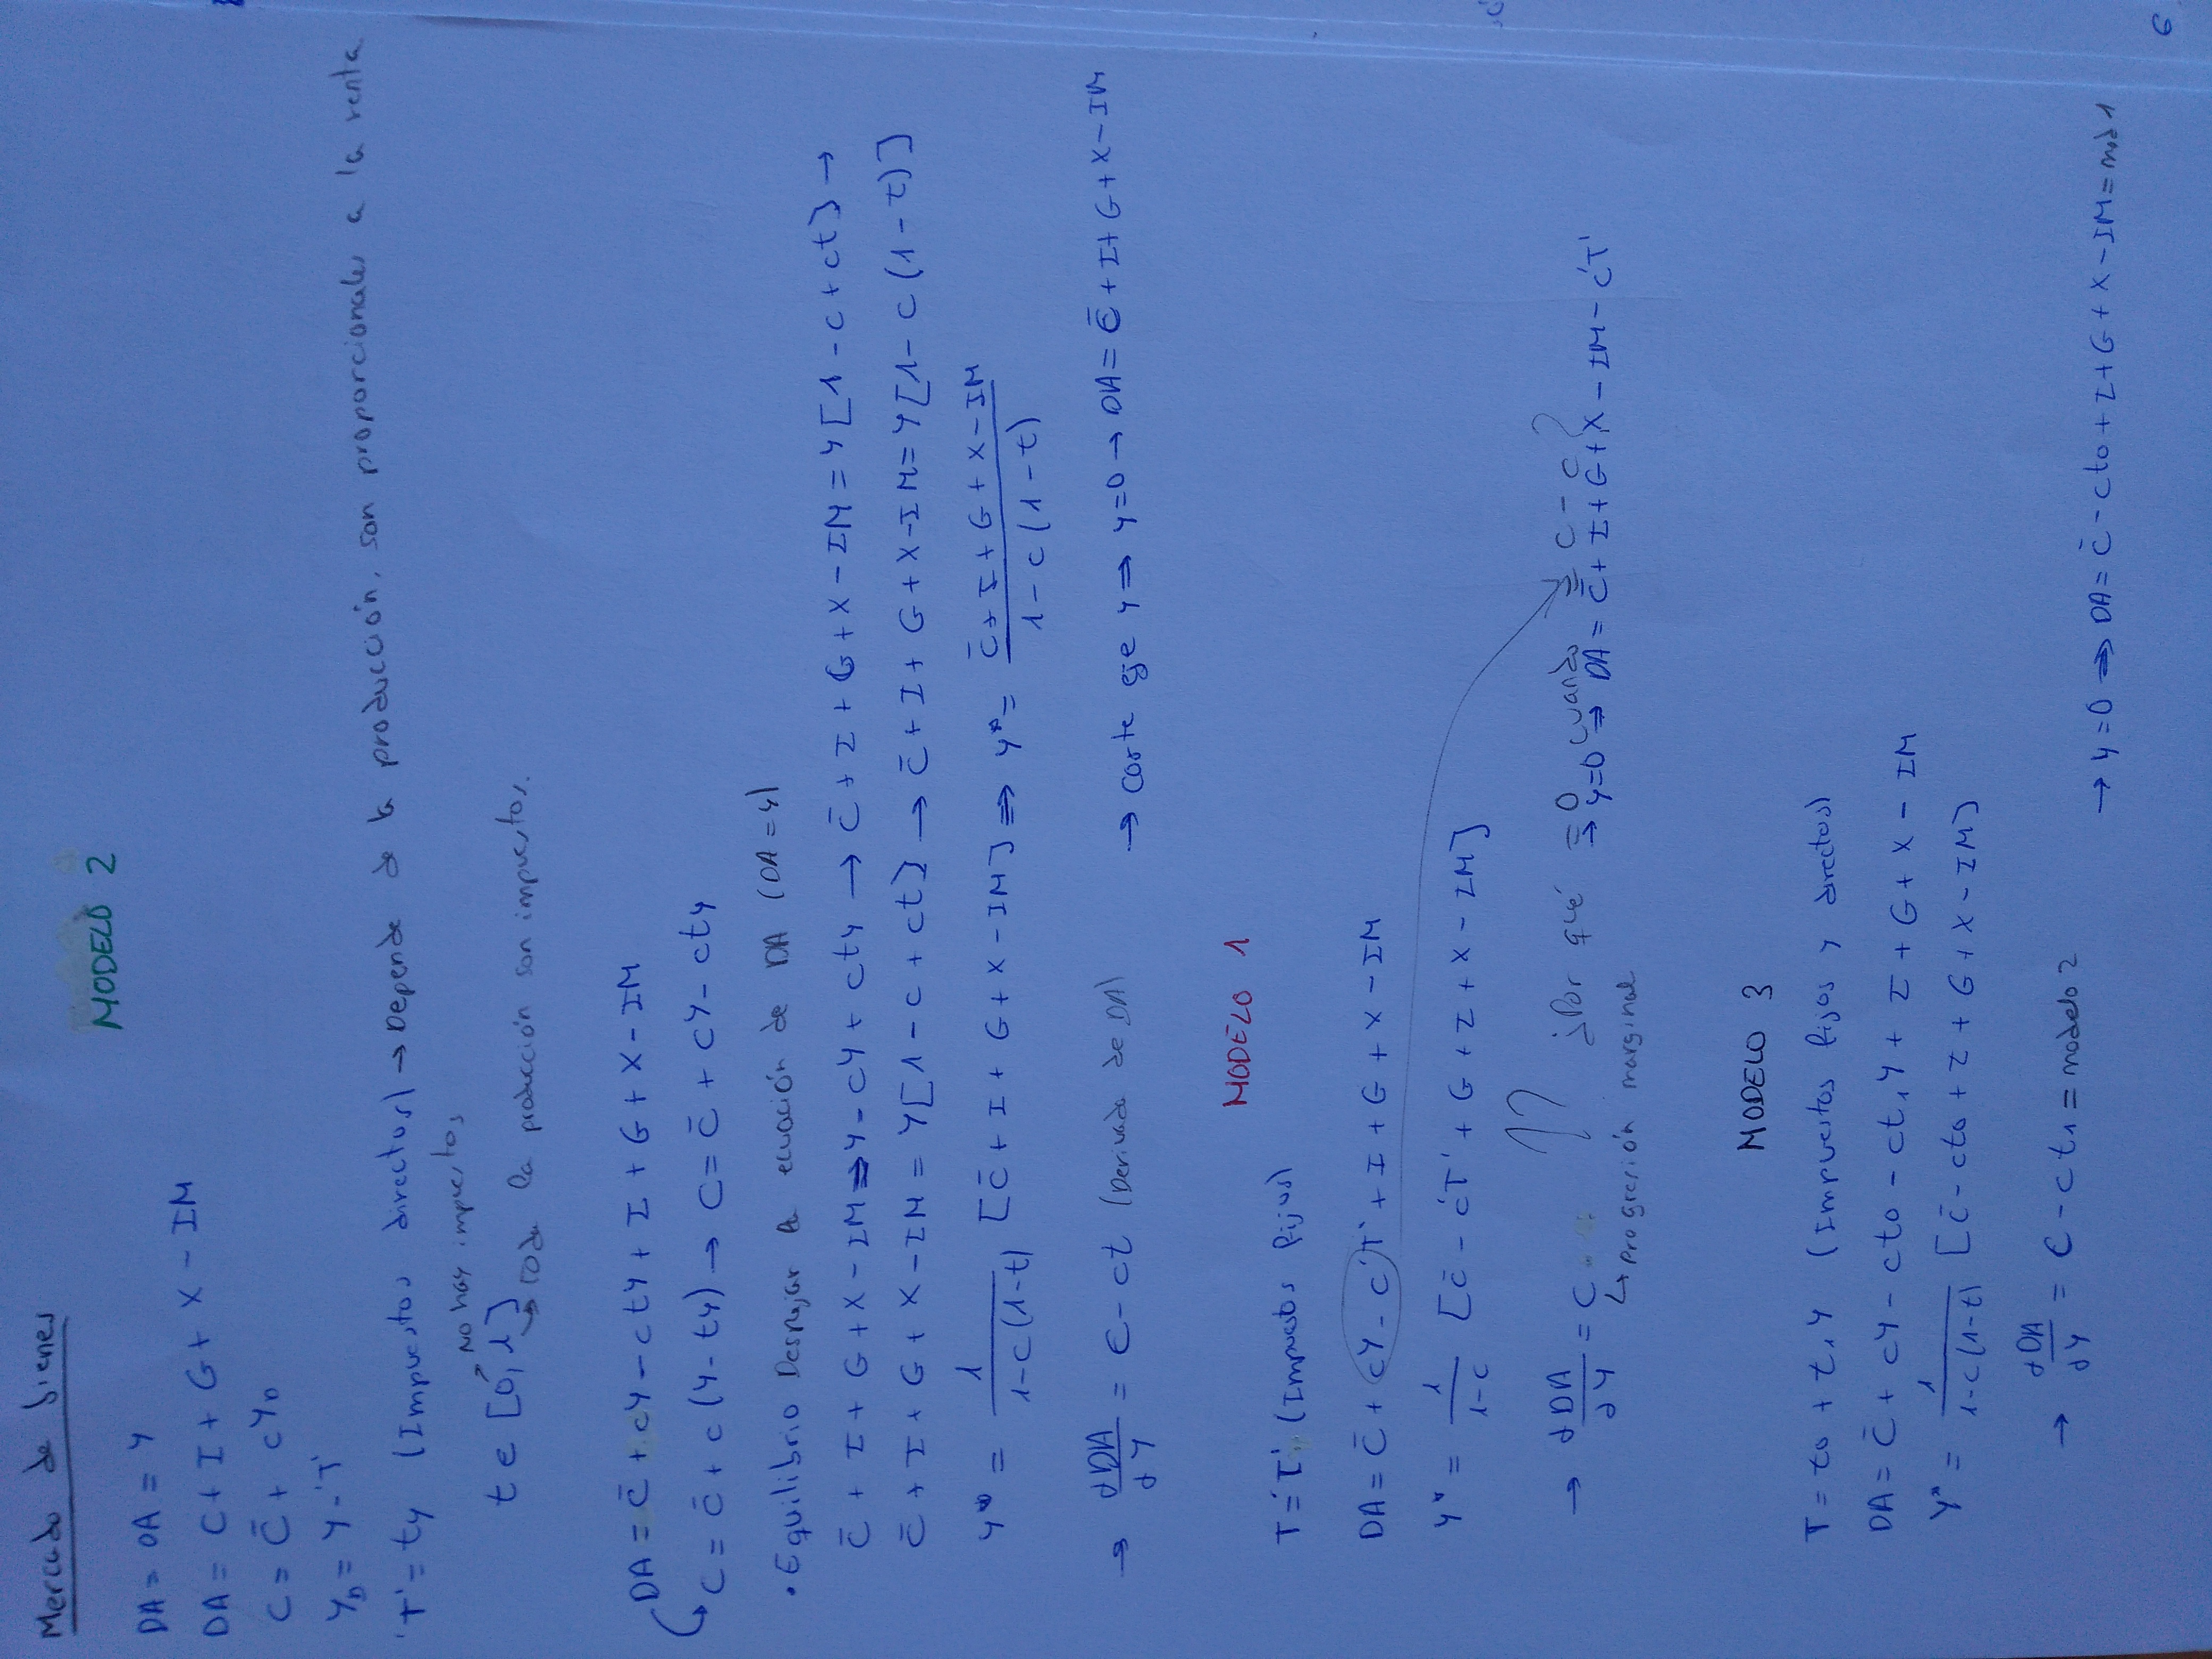 Mercado de bienes
MODELO 2
DA = OA = Y
DA = C + I + G + X - IM
C = C̄ + cY_D
Y_D = Y - T
T = tY (Impuestos directos) → Depende de la producción, son proporcionales a la renta
No hay impuestos
t e [0,1]
→ toda la producción son impuestos.
DA = C̄ + cY - ctY + I + G + X - IM
C = C̄ + c (Y - tY) → C = C̄ + cY - ctY
• Equilibrio Despejar la ecuación de DA (DA = Y)
C̄ + I + G + X - IM ⇒ Y - cY + ctY → C̄ + I + G + X - IM = Y [1 - c + ct] →
C̄ + I + G + X - IM = Y [1 - c + ct] → C̄ + I + G + X - IM = Y [1 - c (1 - t)]
Y* = 1/(1-c(1-t)) [C̄ + I + G + X - IM] ⇒ Y* = (C̄ + I + G + X - IM)/(1 - c (1 - t))
→ dDA/dY = c - ct (Derivada de DA) → Corte eje Y ⇒ Y=0 → DA = C̄ + I + G + X - IM
MODELO 1
T = T (Impuestos fijos)
DA = C̄ + cY - cT + I + G + X - IM
Y* = 1/(1-c) [C̄ - cT + G + I + X - IM]
¿Por qué = 0 cuando = C - C ?
→ dDA/dY = C → Y=0 ⇒ DA = C̄ + I + G + X - IM - cT
↳ progresión marginal
MODELO 3
T = t0 + t1Y (Impuestos fijos y directos)
DA = C̄ + cY - ct0 - ct1Y + I + G + X - IM
Y* = 1/(1-c(1-t)) [C̄ - ct0 + I + G + X - IM]
→ dDA/dY = C - ct1 = modelo 2 → Y=0 ⇒ DA = C̄ - ct0 + I + G + X - IM = mod 1
6